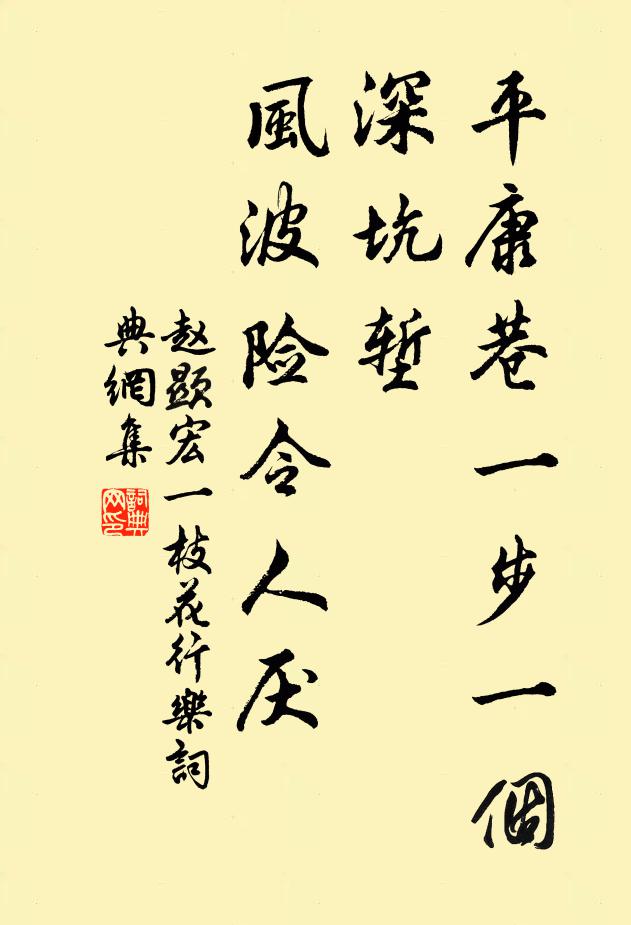 平康巷一步一個
深坑塹
風波险令人厌
赵顯宏一枝花行樂詞
典網集
詞典
网印